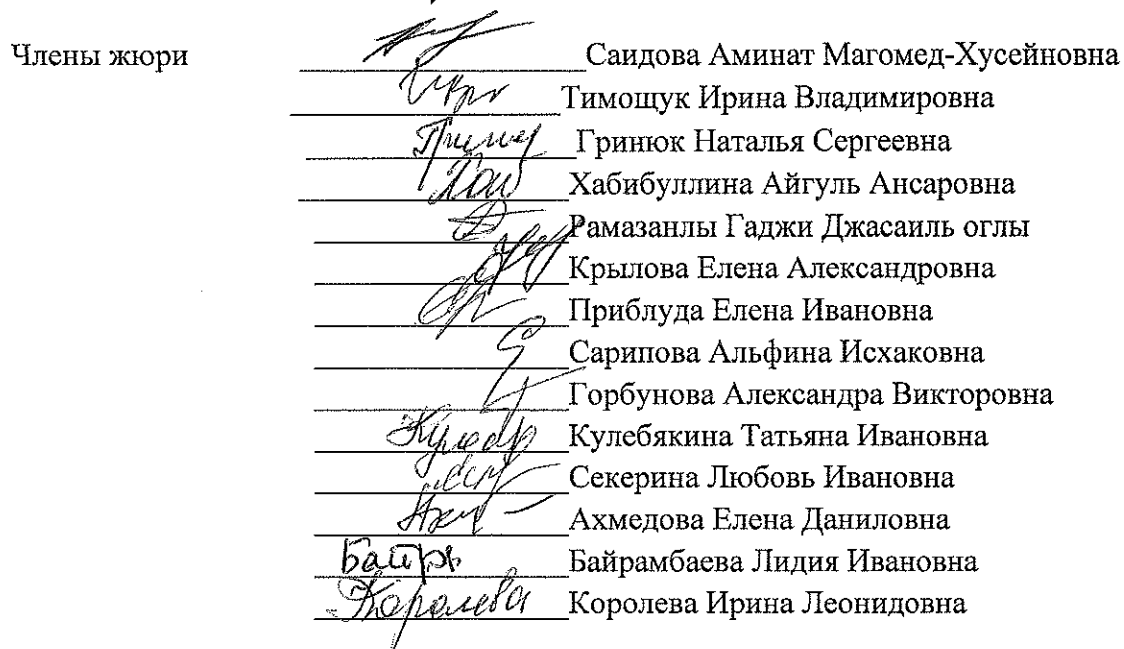 Члены жюри Саидова Аминат Магомед-Хусейновна
Тимощук Ирина Владимировна
Гринюк Наталья Сергеевна
Хабибуллина Айгуль Ансаровна
Рамазанлы Гаджи Джасаиль оглы
Крылова Елена Александровна
Приблуда Елена Ивановна
Сарипова Альфина Исхаковна
Горбунова Александра Викторовна
Кулебякина Татьяна Ивановна
Секерина Любовь Ивановна
Ахмедова Елена Даниловна
Байрамбаева Лидия Ивановна
Королева Королева Ирина Леонидовна